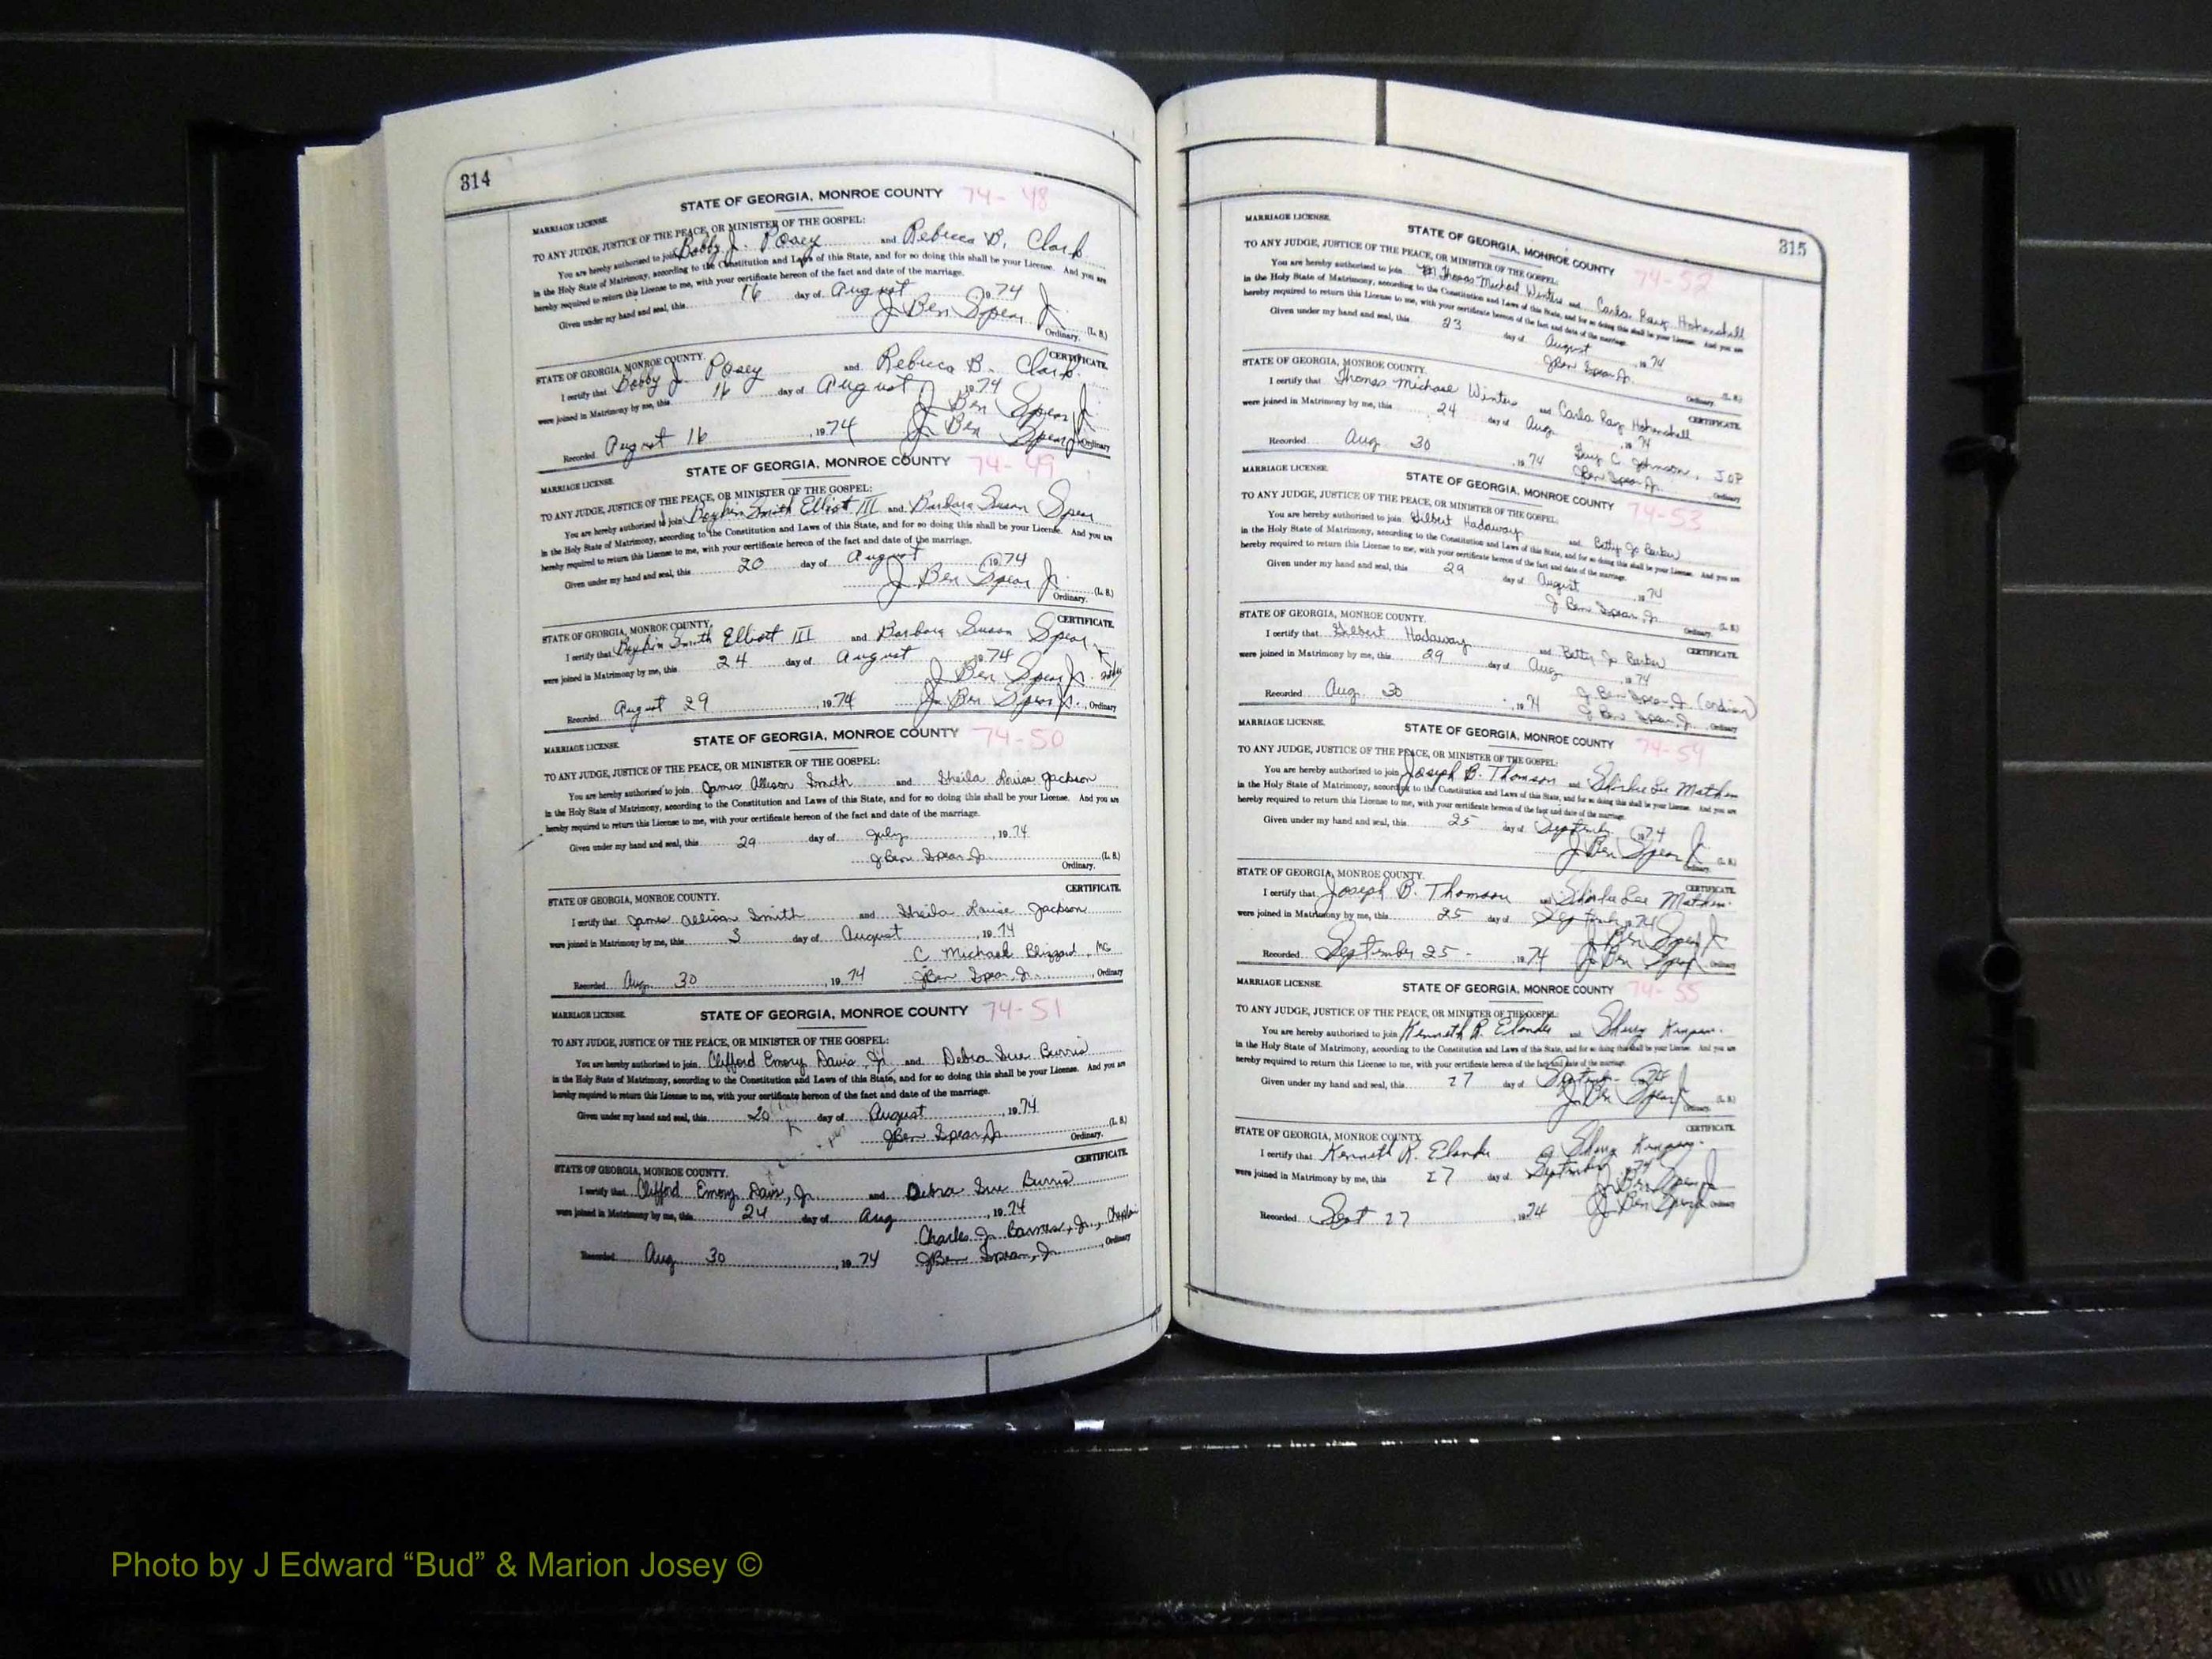 314
STATE OF GEORGIA, MONROE COUNTY 74-48
MARRIAGE LICENSE.
TO ANY JUDGE, JUSTICE OF THE PEACE, OR MINISTER OF THE GOSPEL:
You are hereby authorized to join Bobby J. Posey and Rebecca B. Clark
in the Holy State of Matrimony, according to the Constitution and Laws of this State, and for so doing this shall be your License. And you are
hereby required to return this License to me, with your certificate hereon of the fact and date of the marriage.
Given under my hand and seal, this 16 day of August 1974
J Ben Spear Jr (L. S.)
Ordinary.
STATE OF GEORGIA, MONROE COUNTY. CERTIFICATE.
I certify that Bobby J. Posey and Rebecca B. Clark
were joined in Matrimony by me, this 16 day of August 1974
J Ben Spear Jr
Recorded August 16, 1974 J. Ben Spear Jr Ordinary
STATE OF GEORGIA, MONROE COUNTY 74-49
MARRIAGE LICENSE.
TO ANY JUDGE, JUSTICE OF THE PEACE, OR MINISTER OF THE GOSPEL:
You are hereby authorized to join Boykin Smith Elliott III and Barbara Susan Spear
in the Holy State of Matrimony, according to the Constitution and Laws of this State, and for so doing this shall be your License. And you are
hereby required to return this License to me, with your certificate hereon of the fact and date of the marriage.
Given under my hand and seal, this 20 day of August 1974
J. Ben Spear Jr. (L. S.)
Ordinary.
STATE OF GEORGIA, MONROE COUNTY. CERTIFICATE.
I certify that Boykin Smith Elliott III and Barbara Susan Spear
were joined in Matrimony by me, this 24 day of August 1974
J Ben Spear Jr.
Recorded August 29, 1974 J. Ben Spear Jr., Ordinary
STATE OF GEORGIA, MONROE COUNTY 74-50
MARRIAGE LICENSE.
TO ANY JUDGE, JUSTICE OF THE PEACE, OR MINISTER OF THE GOSPEL:
You are hereby authorized to join James Allison Smith and Sheila Louise Jackson
in the Holy State of Matrimony, according to the Constitution and Laws of this State, and for so doing this shall be your License. And you are
hereby required to return this License to me, with your certificate hereon of the fact and date of the marriage.
Given under my hand and seal, this 29 day of July, 1974
J Ben Spear Jr. (L. S.)
Ordinary.
CERTIFICATE.
STATE OF GEORGIA, MONROE COUNTY.
I certify that James Allison Smith and Sheila Louise Jackson
were joined in Matrimony by me, this 3 day of August, 1974
C. Michael Blizzard, MG
Recorded Aug. 30, 1974 J Ben Spear Jr., Ordinary
STATE OF GEORGIA, MONROE COUNTY 74-51
MARRIAGE LICENSE.
TO ANY JUDGE, JUSTICE OF THE PEACE, OR MINISTER OF THE GOSPEL:
You are hereby authorized to join Clifford Emory Davis, Jr. and Debra Sue Burris
in the Holy State of Matrimony, according to the Constitution and Laws of this State, and for so doing this shall be your License. And you are
hereby required to return this License to me, with your certificate hereon of the fact and date of the marriage.
Given under my hand and seal, this 20 day of August, 1974
J Ben Spear Jr. (L. S.)
Ordinary.
CERTIFICATE.
STATE OF GEORGIA, MONROE COUNTY.
I certify that Clifford Emory Davis, Jr. and Debra Sue Burris
were joined in Matrimony by me, this 24 day of Aug, 1974
Charles J. Barnes, Jr., Chaplain
Recorded Aug 30, 1974 J Ben Spear, Jr., Ordinary
315
STATE OF GEORGIA, MONROE COUNTY 74-52
MARRIAGE LICENSE.
TO ANY JUDGE, JUSTICE OF THE PEACE, OR MINISTER OF THE GOSPEL:
You are hereby authorized to join Thomas Michael Winters and Carla Ray Hohenshell
in the Holy State of Matrimony, according to the Constitution and Laws of this State, and for so doing this shall be your License. And you are
hereby required to return this License to me, with your certificate hereon of the fact and date of the marriage.
Given under my hand and seal, this 23 day of August, 1974
J Ben Spear Jr. (L. S.)
Ordinary.
STATE OF GEORGIA, MONROE COUNTY. CERTIFICATE.
I certify that Thomas Michael Winters and Carla Ray Hohenshell
were joined in Matrimony by me, this 24 day of Aug. 1974
Guy C. Johnson, JOP
Recorded Aug. 30, 1974 J Ben Spear Jr. Ordinary
STATE OF GEORGIA, MONROE COUNTY 74-53
MARRIAGE LICENSE.
TO ANY JUDGE, JUSTICE OF THE PEACE, OR MINISTER OF THE GOSPEL:
You are hereby authorized to join Gilbert Hadaway and Betty Jo Barker
in the Holy State of Matrimony, according to the Constitution and Laws of this State, and for so doing this shall be your License. And you are
hereby required to return this License to me, with your certificate hereon of the fact and date of the marriage.
Given under my hand and seal, this 29 day of August, 1974
J Ben Spear, Jr. (L. S.)
Ordinary.
STATE OF GEORGIA, MONROE COUNTY. CERTIFICATE.
I certify that Gilbert Hadaway and Betty Jo Barker
were joined in Matrimony by me, this 29 day of Aug, 1974
J Ben Spear, Jr.
Recorded Aug. 30, 1974 J Ben Spear, Jr. Ordinary
STATE OF GEORGIA, MONROE COUNTY 74-54
MARRIAGE LICENSE.
TO ANY JUDGE, JUSTICE OF THE PEACE, OR MINISTER OF THE GOSPEL:
You are hereby authorized to join Joseph B. Thomson and Shirlie Lee
in the Holy State of Matrimony, according to the Constitution and Laws of this State, and for so doing this shall be your License. And you are
hereby required to return this License to me, with your certificate hereon of the fact and date of the marriage.
Given under my hand and seal, this 25 day of September 1974
J Ben Spear Jr (L. S.)
Ordinary.
STATE OF GEORGIA, MONROE COUNTY. CERTIFICATE.
I certify that Joseph B. Thomson and Shirlie Lee
were joined in Matrimony by me, this 25 day of September 1974
J Ben Spear Jr
Recorded September 25 - , 1974 J. Ben Spear Jr Ordinary
STATE OF GEORGIA, MONROE COUNTY 74-55
MARRIAGE LICENSE.
TO ANY JUDGE, JUSTICE OF THE PEACE, OR MINISTER OF THE GOSPEL:
You are hereby authorized to join Kenneth R. and
in the Holy State of Matrimony, according to the Constitution and Laws of this State, and for so doing this shall be your License. And you are
hereby required to return this License to me, with your certificate hereon of the fact and date of the marriage.
Given under my hand and seal, this 27 day of September 1974
J. Ben Spear Jr (L. S.)
Ordinary.
CERTIFICATE.
STATE OF GEORGIA, MONROE COUNTY.
I certify that Kenneth R.
were joined in Matrimony by me, this 27 day of September 1974
J. Ben Spear Jr
Recorded Sept 27, 1974 J. Ben Spear Jr Ordinary
Photo by J Edward “Bud” & Marion Josey ©